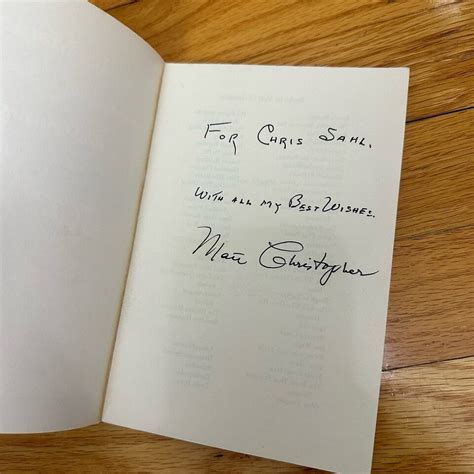 FOR CHRIS SAHL.
WITH ALL MY BEST WISHES.
Matt Christopher